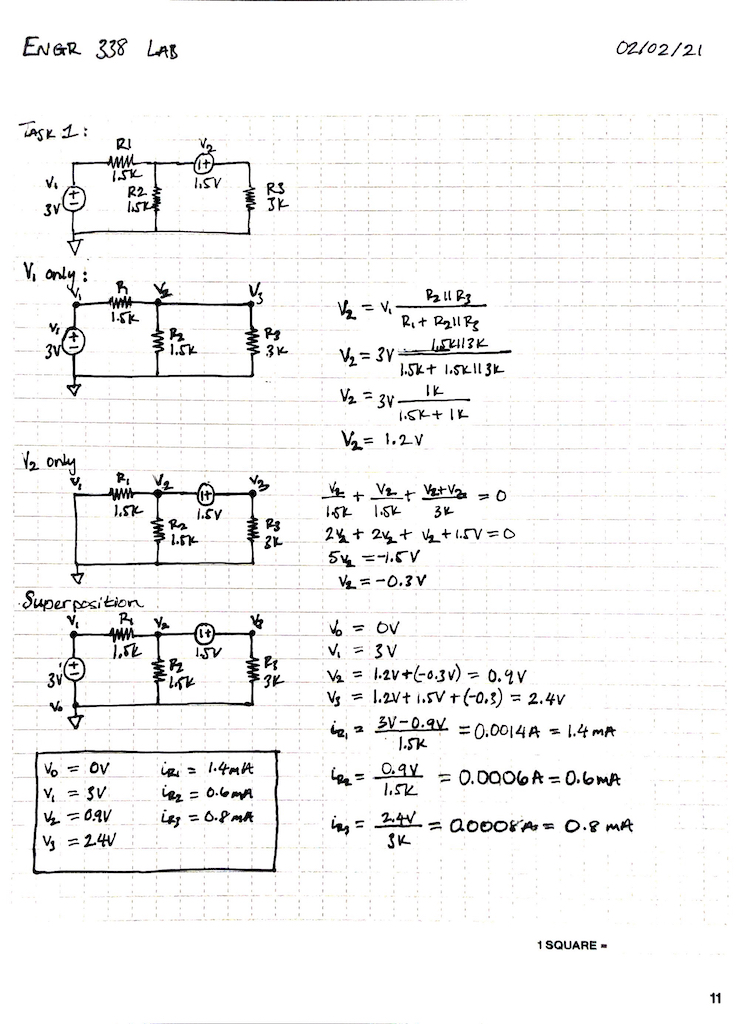 ENGR 338 LAB 02/02/21
TASK 1:
R1 V2
1.5K 1.5V
V1 R2 R3
3V 1.5K 3K
V1 only:
V1 R1 V2 V3
1.5K
V1 R2 R3
3V 1.5K 3K
V2 = V1 R2||R3 / R1 + R2||R3
V2 = 3V 1.5K||3K / 1.5K + 1.5K||3K
V2 = 3V 1K / 1.5K + 1K
V2 = 1.2V
V2 only
V1 R1 V2 V3
1.5K 1.5V
R2 R3
1.5K 3K
V2/1.5K + V2/1.5K + V2+V2/3K = 0
2V2 + 2V2 + V2 + 1.5V = 0
5V2 = -1.5V
V2 = -0.3V
Superposition
V1 R1 V2 V3
1.5K 1.5V
3V R2 R3
1.5K 3K
V0
V0 = 0V
V1 = 3V
V2 = 1.2V + (-0.3V) = 0.9V
V3 = 1.2V + 1.5V + (-0.3) = 2.4V
iR1 = 3V - 0.9V / 1.5K = 0.0014A = 1.4mA
iR2 = 0.9V / 1.5K = 0.0006A = 0.6mA
iR3 = 2.4V / 3K = 0.0008A = 0.8mA
V0 = 0V iR1 = 1.4mA
V1 = 3V iR2 = 0.6mA
V2 = 0.9V iR3 = 0.8mA
V3 = 2.4V
1 SQUARE =
11